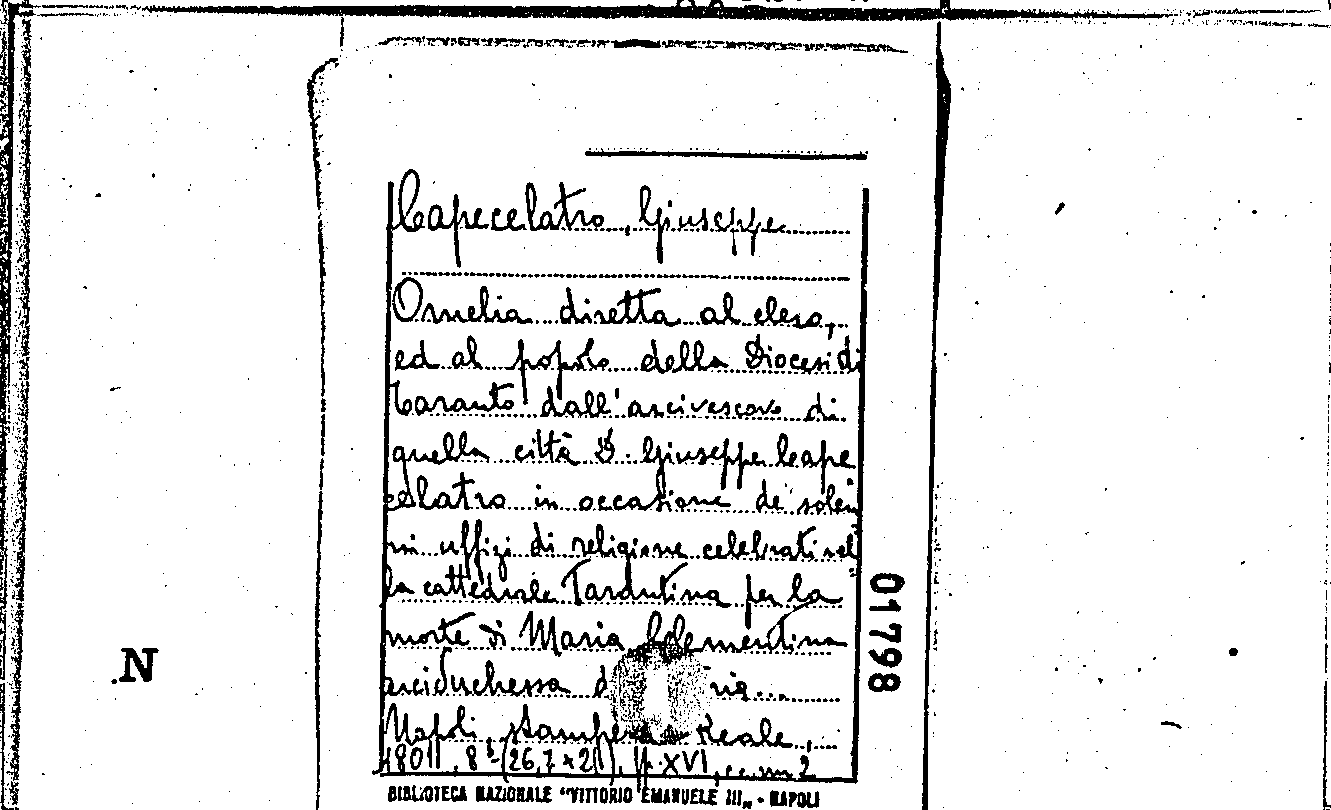 Capecelatro, Giuseppe
Omelia diretta al clero,
ed al popolo della Diocesi di
Taranto dall'arcivescovo di
quella città D. Giuseppe Cape
celatro in occasione de' solen
ni uffizi di religione celebrati nel
la cattedrale Tarantina per la
morte di Maria Clementina
arciduchessa
Napoli, stamperia Reale,
8° (26,7 x 20), p. XVI,
BIBLIOTECA NAZIONALE "VITTORIO EMANUELE III" - NAPOLI
01798
N